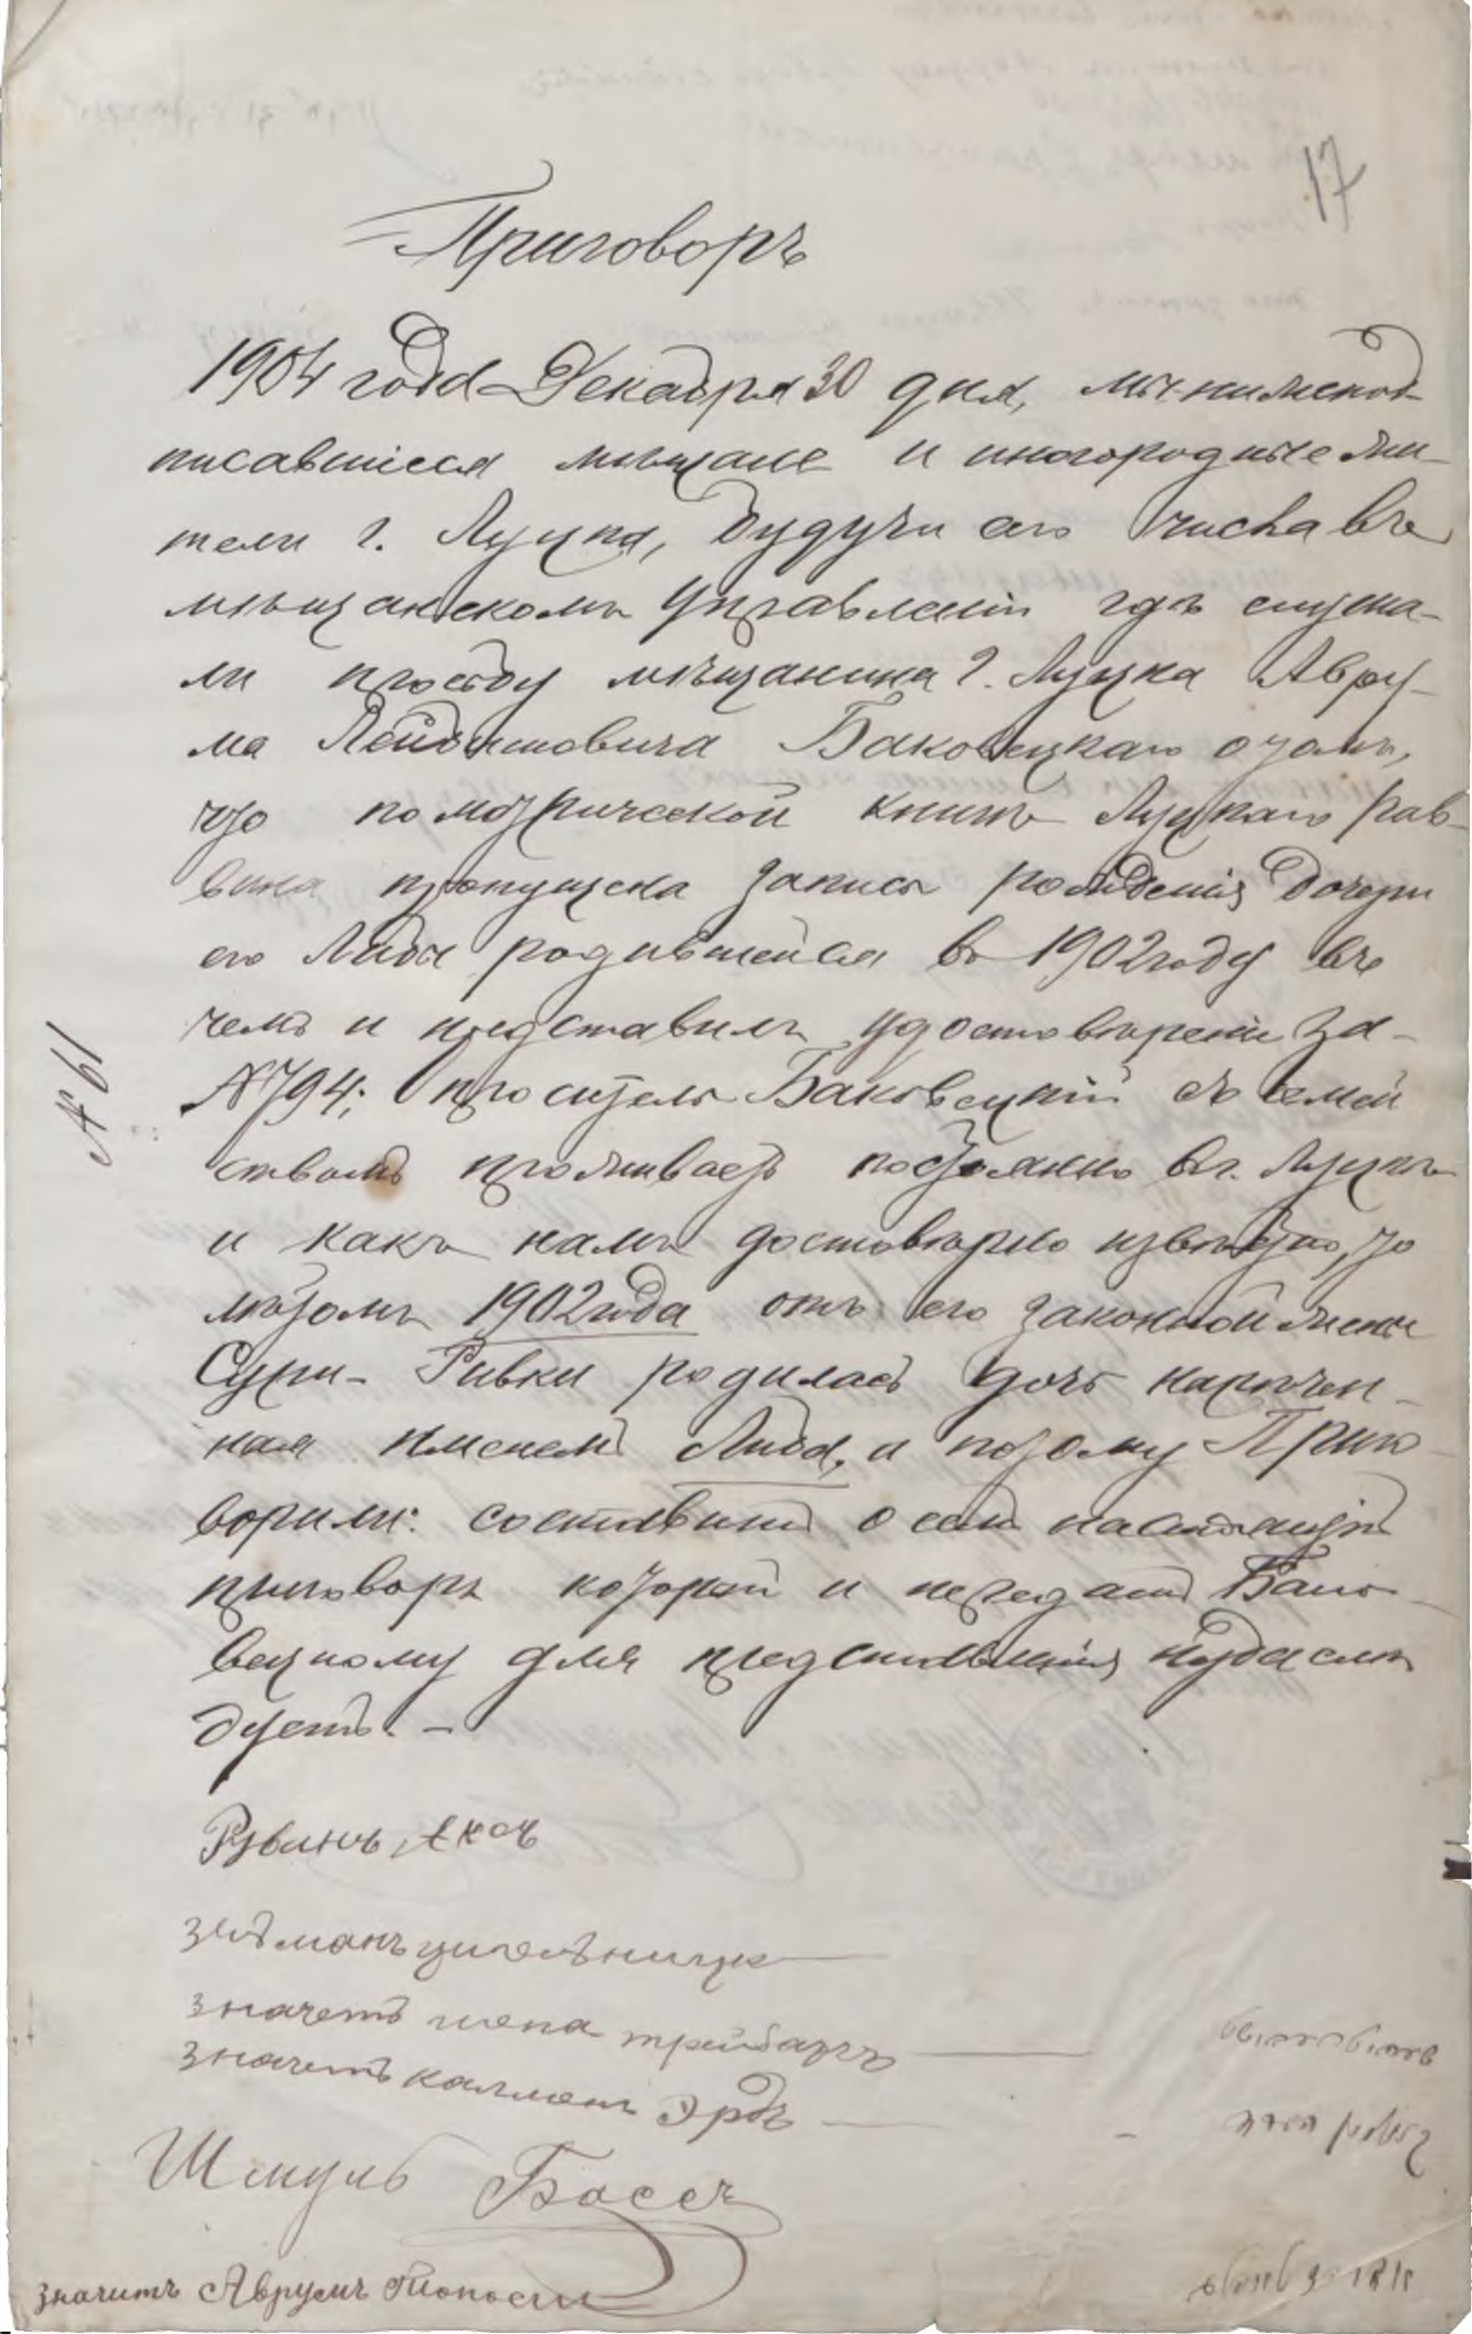 17
Приговоръ
1904 года Декабря 30 дня, мы нижепод-
писавшіеся мѣщане и иногородные жи-
тели г. Луцка, будучи сего числа въ
мѣщанскомъ Управленіи гдѣ слуша-
ли прозьбу мѣщанина г. Луцка Авру-
ма Баковецкаго о томъ,
что по метрической книгѣ Луцкаго рав-
вина пропущена запись рожденія дочери
его Люба родившейся въ 1902 году въ
чемъ и представилъ удостовѣреніе за
№ 794; проситель Баковецкій съ семей
ствомъ проживаетъ постоянно въ г. Луцкѣ
и какъ намъ достовѣрно извѣстно, что
лѣтомъ 1902 года отъ его законной жены
Суры-Ривки родилась дочь наречен-
ная именемъ Люба, и потому Приго-
ворили: составить о семъ настоящій
приговоръ который и передать Бако-
вецкому для представленія куда слѣ
дуетъ. —
№ 61
Рувинъ Аксъ
Зейманъ
значетъ шепа трейбачъ
значетъ калманъ Эрдъ
Шмуль Бассъ
значитъ Аврумъ